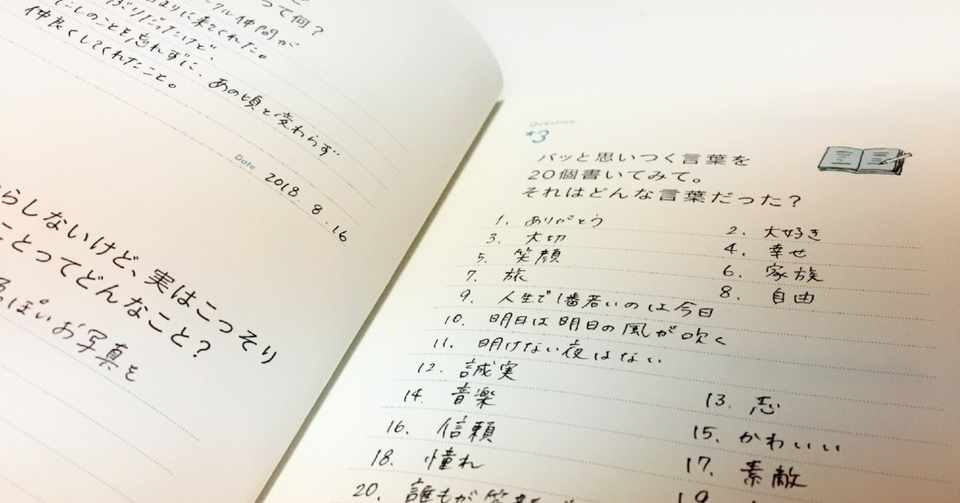 って何?
仲間が
に来てくれた。
だったけど、
のことを忘れずに、あの頃と変わらず
仲良くしてくれたこと。
Date 2018. 8. 16
らしないけど、実はこっそり
ことってどんなこと?
っぽいお写真を
Question
#3
パッと思いつく言葉を
20個書いてみて。
それはどんな言葉だった?
1. ありがとう 2. 大好き
3. 大切 4. 幸せ
5. 笑顔 6. 家族
7. 旅 8. 自由
9. 人生で1番若いのは今日
10. 明日は明日の風が吹く
11. 明けない夜はない
12. 誠実 13. 恋
14. 音楽 15. かわいい
16. 信頼 17. 素敵
18. 憧れ 19.
20. 誰もが笑顔